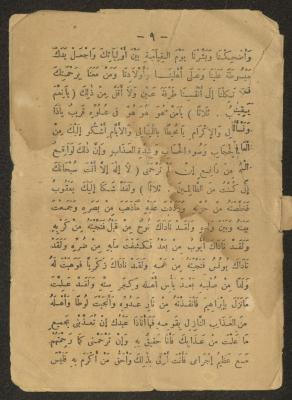 - ٩ -
وَأَضْحِكْنَا وَبَشِّرْنَا يَوْمَ الْقِيَامَةِ بَيْنَ أَوْلِيَائِكَ وَاجْعَلْ يَدَكَ
مَبْسُوطَةً عَلَيْنَا وَعَلَى أَهْلِينَا وَأَوْلَادِنَا وَمَنْ مَعَنَا بِرَحْمَتِكَ
تَكِلْنَا إِلَى أَنْفُسِنَا طَرْفَةَ عَيْنٍ وَلَا أَقَلَّ مِنْ ذَلِكَ (يَا نِعْمَ
ثلاثا) يَا مَنْ هُوَ هُوَ هُوَ فِي عُلُوِّهِ قَرِيبُ يَاذَا
وَالْإِكْرَامِ يَا مُحِيطًا بِاللَّيَالِي وَالْأَيَّامِ أَشْكُو إِلَيْكَ مِنْ
الْحِجَابِ وَسُوءِ الْحِسَابِ وَشِدَّةِ الْعَذَابِ وَإِنَّ ذَلِكَ لَوَاقِعٌ
مِنْ دَافِعٍ إِنْ لَمْ تَرْحَمْنِي (لَا إِلَهَ إِلَّا أَنْتَ سُبْحَانَكَ
إِنِّي كُنْتُ مِنَ الظَّالِمِينَ . ثلاثا) وَلَقَدْ شَكَا إِلَيْكَ يَعْقُوبُ
فَخَلَّصْتَهُ مِنْ حُزْنِهِ وَرَدَدْتَ عَلَيْهِ مَاذَهَبَ مِنْ بَصَرِهِ وَجَمَعْتَ
بَيْنَهُ وَبَيْنَ وَلَدِهِ وَلَقَدْ نَادَاكَ نُوحٌ مِنْ قَبْلُ فَنَجَّيْتَهُ مِنْ كَرْبِهِ
وَلَقَدْ نَادَاكَ أَيُّوبُ مِنْ بَعْدُ فَكَشَفْتَ مَابِهِ مِنْ ضُرِّهِ وَلَقَدْ
نَادَاكَ يُونُسُ فَنَجَّيْتَهُ مِنْ غَمِّهِ وَلَقَدْ نَادَاكَ زَكَرِيَّا فَوَهَبْتَ لَهُ
وَلَدًا مِنْ صُلْبِهِ بَعْدَ يَأْسِ أَهْلِهِ وَكِبَرِ سِنِّهِ وَلَقَدْ عَلِمْتَ
مَا نَزَلَ بِإِبْرَاهِيمَ فَأَنْقَذْتَهُ مِنْ نَارِ عَدُوِّهِ وَأَنْجَيْتَ لُوطًا وَأَهْلَهُ
مِنَ الْعَذَابِ النَّازِلِ بِقَوْمِهِ فَهَا أَنَاذَا عَبْدُكَ إِنْ تُعَذِّبْنِي بِجَمِيعِ
مَا عَلِمْتُ مِنْ عَذَابِكَ فَأَنَا حَقِيقٌ بِهِ وَإِنْ تَرْحَمْنِي كَمَا رَحِمْتَهُمْ
مَعَ عَظِيمِ إِجْرَامِي فَأَنْتَ أَوْلَى بِذَلِكَ وَأَحَقُّ مَنْ أَكْرَمَ بِهِ فَلَيْسَ